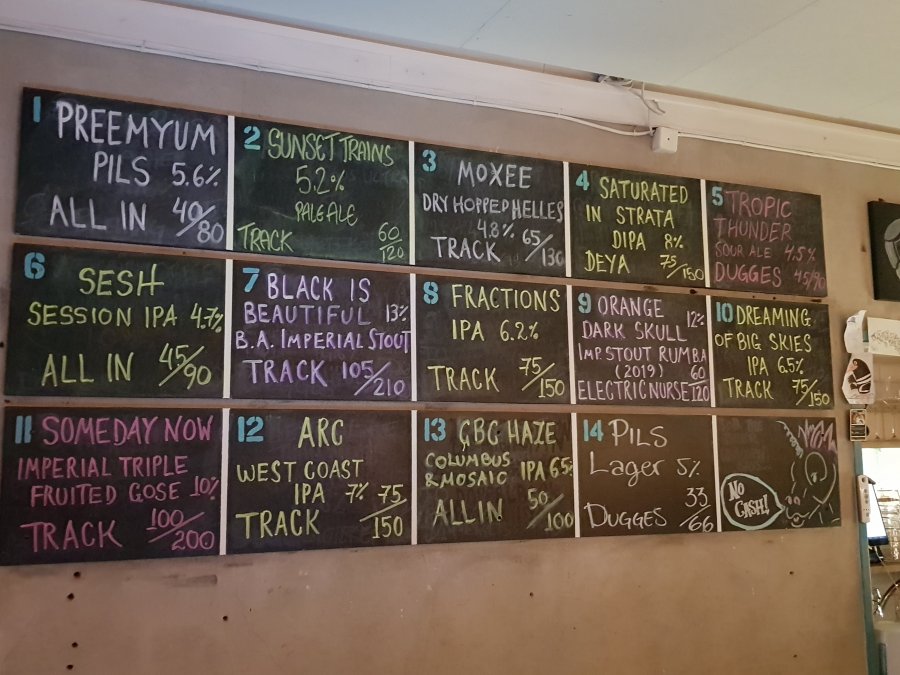 1 PREEMYUM
PILS 5.6%
ALL IN 40/80
2 SUNSET TRAINS
5.2%
PALE ALE
TRACK 60/120
3 MOXEE
DRY HOPPED HELLES
4.8%
TRACK 65/130
4 SATURATED
IN STRATA
DIPA 8%
DEYA 75/150
5 TROPIC
THUNDER
SOUR ALE 4.5%
DUGGES 45/90
6 SESH
SESSION IPA 4.7%
ALL IN 45/90
7 BLACK IS
BEAUTIFUL 13%
B.A. IMPERIAL STOUT
TRACK 105/210
8 FRACTIONS
IPA 6.2%
TRACK 75/150
9 ORANGE
DARK SKULL 12%
IMP. STOUT RUMBA
(2019)
ELECTRIC NURSE 60/120
10 DREAMING
OF BIG SKIES
IPA 6.5%
TRACK 75/150
11 SOMEDAY NOW
IMPERIAL TRIPLE
FRUITED GOSE 10%
TRACK 100/200
12 ARC
WEST COAST
IPA 7%
TRACK 75/150
13 GBG HAZE
COLUMBUS
& MOSAIC IPA 6.5%
ALL IN 50/100
14 PILS
Lager 5%
DUGGES 33/66
NO
CASH!